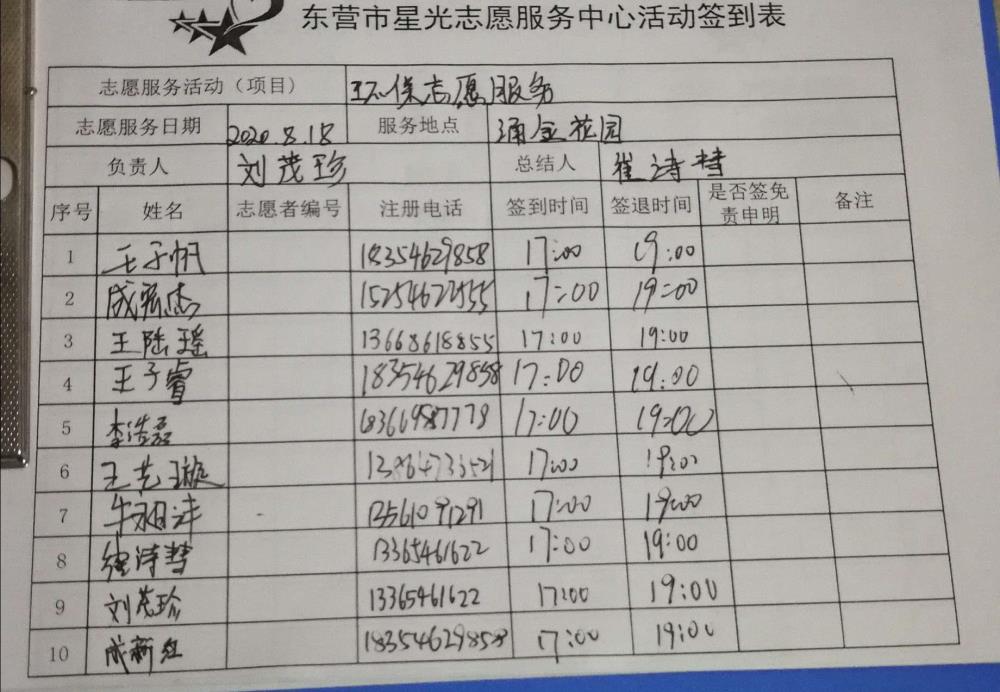 东营市星光志愿服务中心活动签到表
志愿服务活动（项目） 环保志愿服务
志愿服务日期 2020.8.18 服务地点 涌金花园
负责人 刘茂珍 总结人 崔诗彗
序号 姓名 志愿者编号 注册电话 签到时间 签退时间 是否签免责申明 备注
1 王子帆 18354629858 17:00 19:00
2 15254622555 17:00 19:00
3 王陆瑶 13668618855 17:00 19:00
4 王子睿 18354629858 17:00 19:00
5 李浩磊 18366987778 17:00 19:00
6 王艺璇 17:00 19:00
7 13561091291 17:00 19:00
8 诗彗 13365461622 17:00 19:00
9 刘茂珍 13365461622 17:00 19:00
10 成新红 18354629858 17:00 19:00